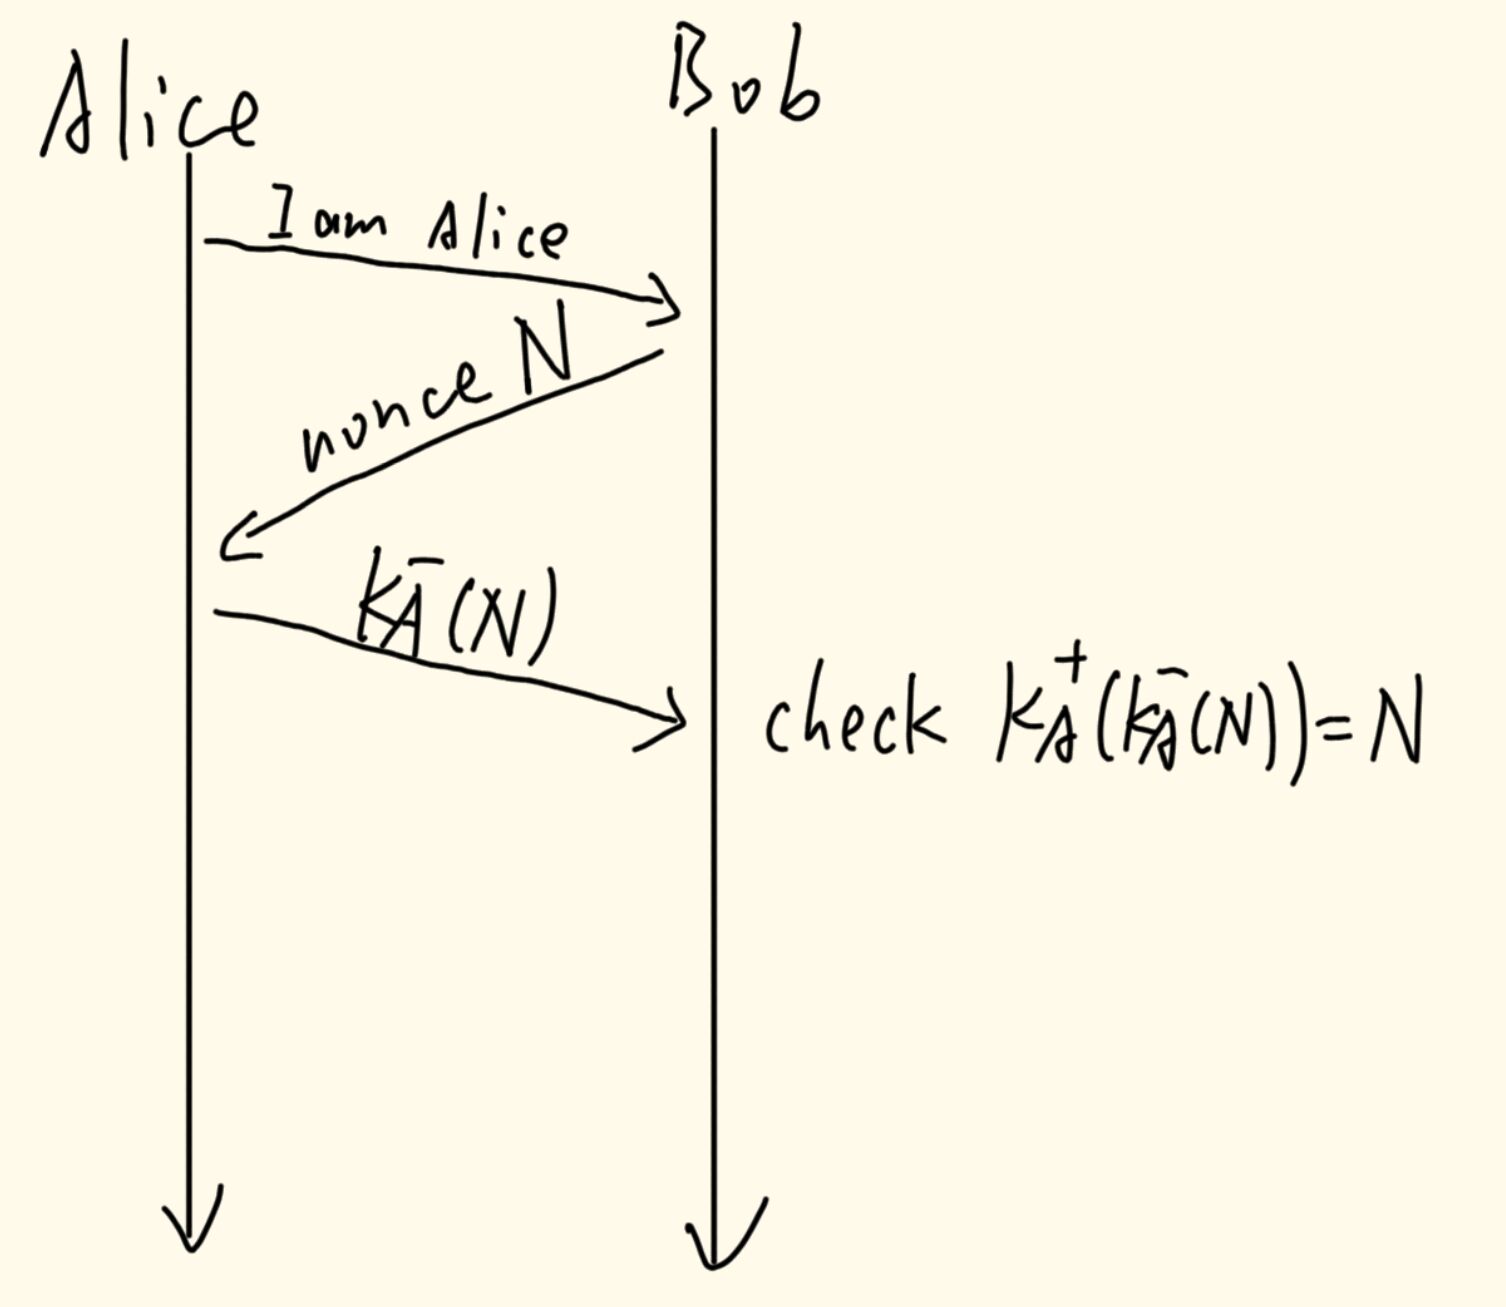 Alice
Bob
I am Alice
nonce N
K_A^-(N)
check K_A^+(K_A^-(N))=N